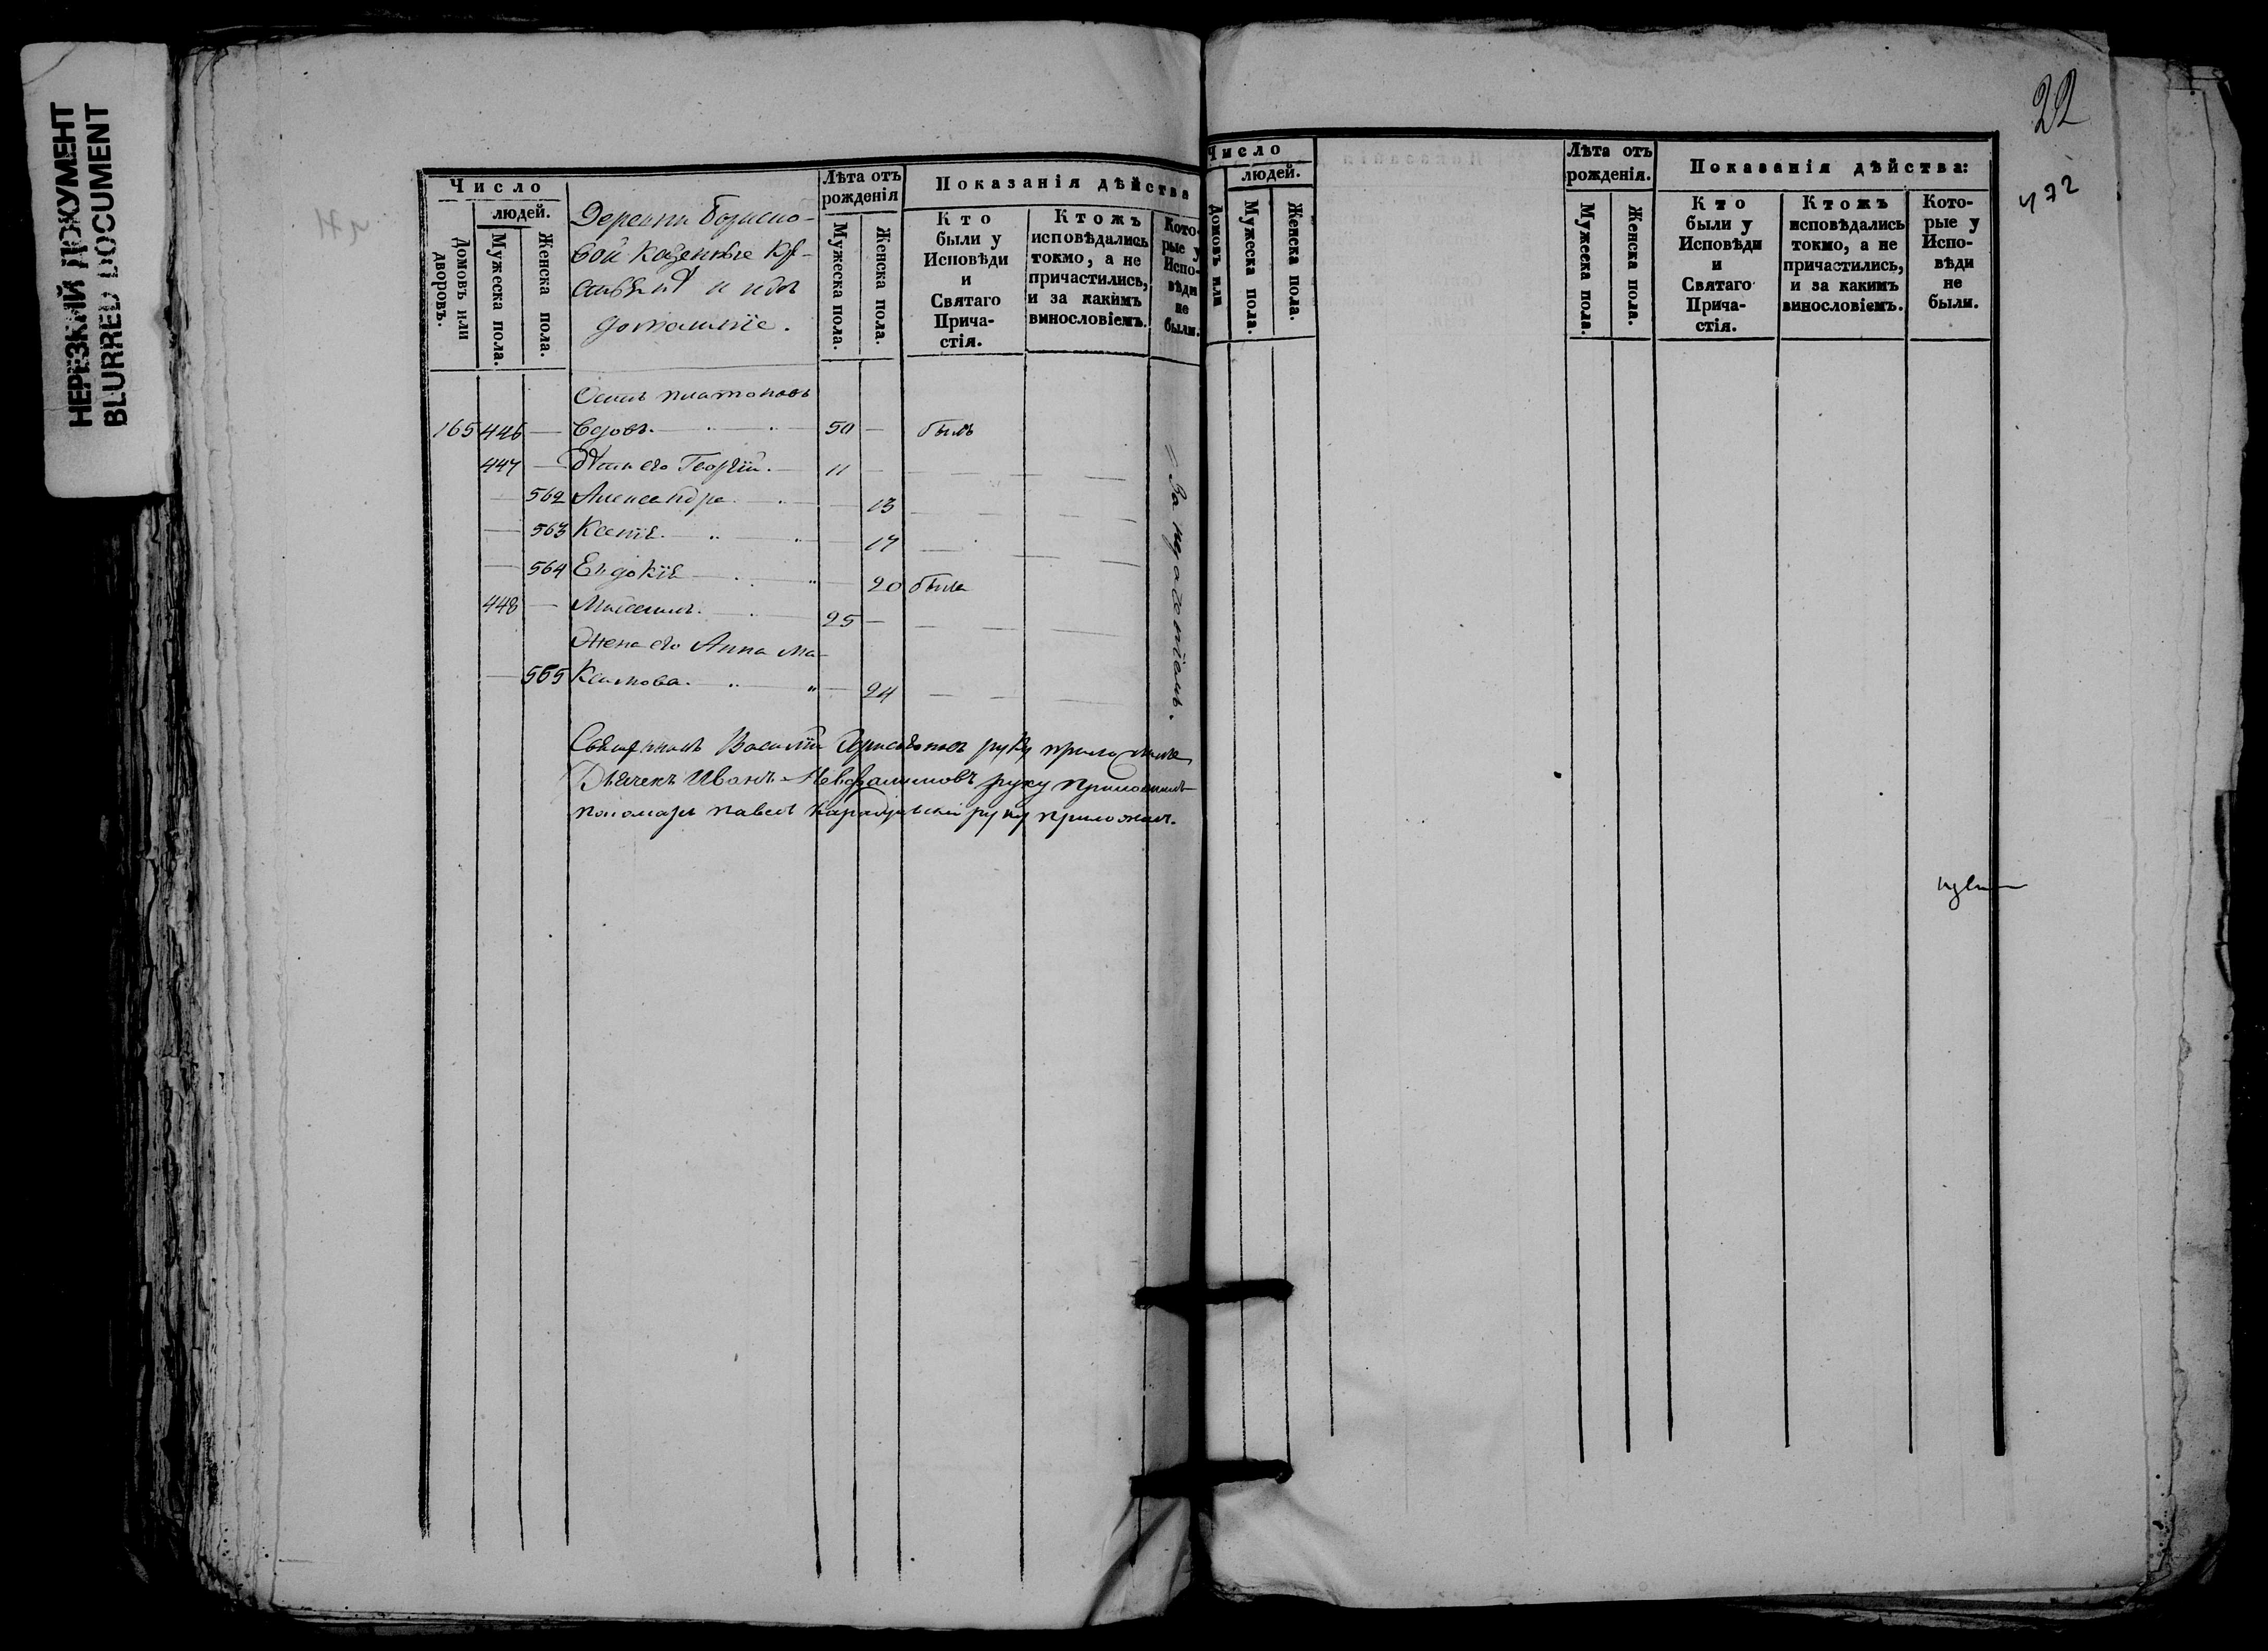 НЕРЕЗКИЙ ДОКУМЕНТ
BLURRED DOCUMENT
Число
людей.
Домовъ или дворовъ.
Мужеска пола.
Женска пола.
Деревни
вой казенные кре-
стьяне и ихъ
домашніе.
Лѣта отъ
рожденія
Мужеска пола.
Женска пола.
Показанія дѣйства
Кто
были у
Исповѣди
и
Святаго
Прича-
стія.
Ктожъ
исповѣдались
токмо, а не
причастились,
и за какимъ
винословіемъ.
Кото-
рые у
Испо-
вѣди
не
были.
Платоновъ
165 446 — вдовъ. 50 — былъ
447 — его Георгій. 11 —
— 562 Александра — 13
— 563 Ксенія — 17
— 564 Евдокія — 20 была
448 — 25 —
Жена его Анна Ма-
— 565 ксимова. — 24
За нераденіемъ.
Священникъ Василій руку приложилъ
Дьячекъ Иванъ руку приложилъ
Пономарь Павелъ руку приложилъ.
22
472
Число
людей.
Домовъ или
Мужеска пола.
Женска пола.
Лѣта отъ
рожденія.
Мужеска пола.
Женска пола.
Показанія дѣйства:
Кто
были у
Исповѣди
и
Святаго
Прича-
стія.
Ктожъ
исповѣдались
токмо, а не
причастились,
и за какимъ
винословіемъ.
Кото-
рые у
Испо-
вѣди
не
были.